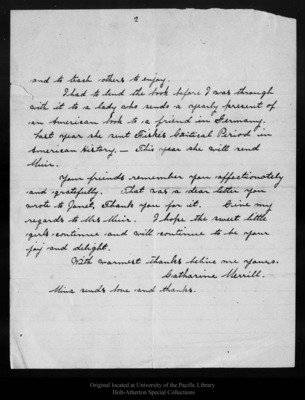 2
and to teach others to enjoy.
I had to lend the book before I was through
with it to a lady who sends a yearly present of
an American book to a friend in Germany.
Last year she sent Fiske's Critical Period in
American History. — This year she will send
Muir.
Your friends remember you affectionately
and gratefully. That was a dear letter you
wrote to Janet, Thank you for it. Give my
regards to Mrs Muir. I hope the sweet little
girls continue and will continue to be your
joy and delight.
With warmest thanks believe me yours.
Catharine Merrill.
Mina sends love and thanks.
Original located at University of the Pacific Library
Holt-Atherton Special Collections